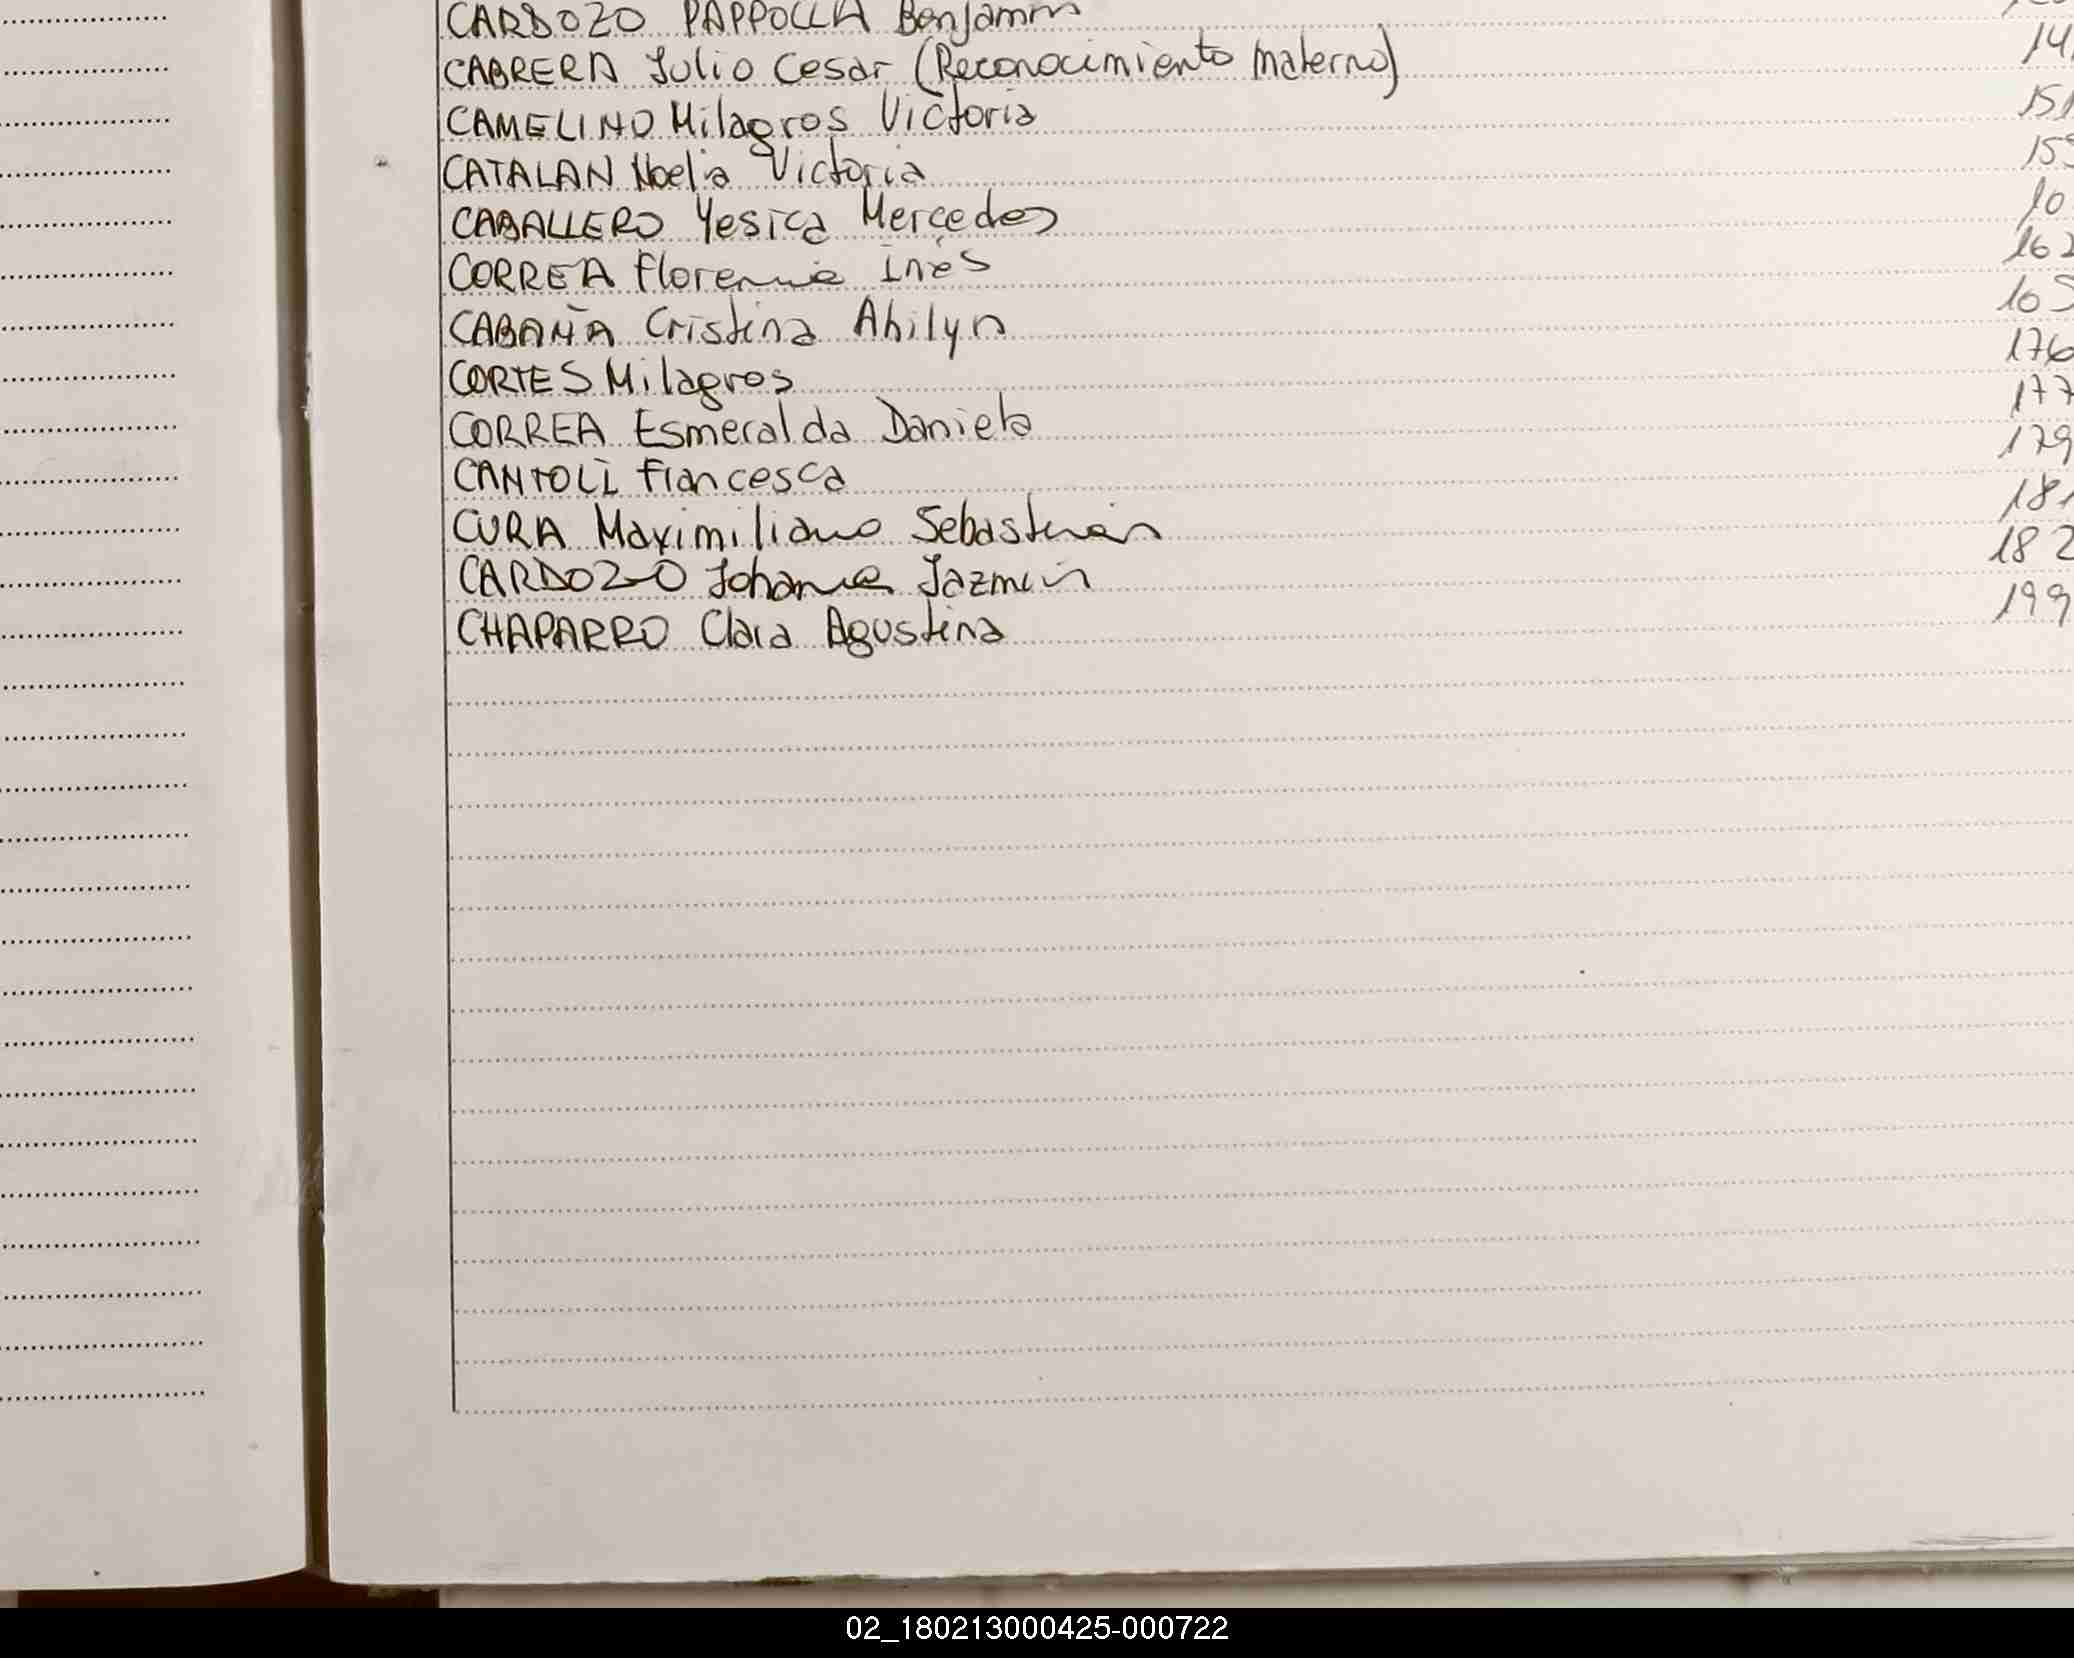 CARDOZO PAPPOLLA Benjamin
CABRERA Julio Cesar (Reconocimiento Materno) 14
CAMELINO Milagros Victoria 151
CATALAN Noelia Victoria 155
CABALLERO Yesica Mercedes
CORREA Florencia Inés 162
CABAÑA Cristina Ahilyn
CORTES Milagros 176
CORREA Esmeralda Daniela 177
CANTOLI Francesca 179
CURA Maximiliano Sebastián 181
CARDOZO Johana Jazmín 182
CHAPARRO Clara Agustina 199
02_180213000425-000722